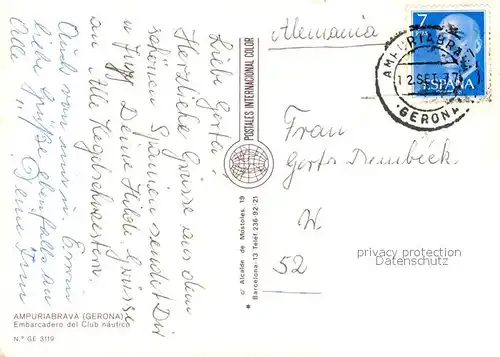 Alemania
7
AMPURIABRAVA
12 SET. 77
ESPAÑA
GERONA
Liebe Gerta!
Herzliche Grüsse aus dem
schönen Spanien sendet Dir
u Deine Hilde. Grüsse
an Alle Kegelschwestern.
Auch von mir u. Erwin
liebe Grüße ebenfalls an
Alle! Deine
Frau
Gerta Dembiek
W
52
POSTALES INTERNACIONAL COLOR
Alcalde de Móstoles, 19
Barcelona-13 Teléf. 236-92-21
privacy protection
Datenschutz
AMPURIABRAVA (GERONA)
Embarcadero del Club náutico
N.º GE 3119